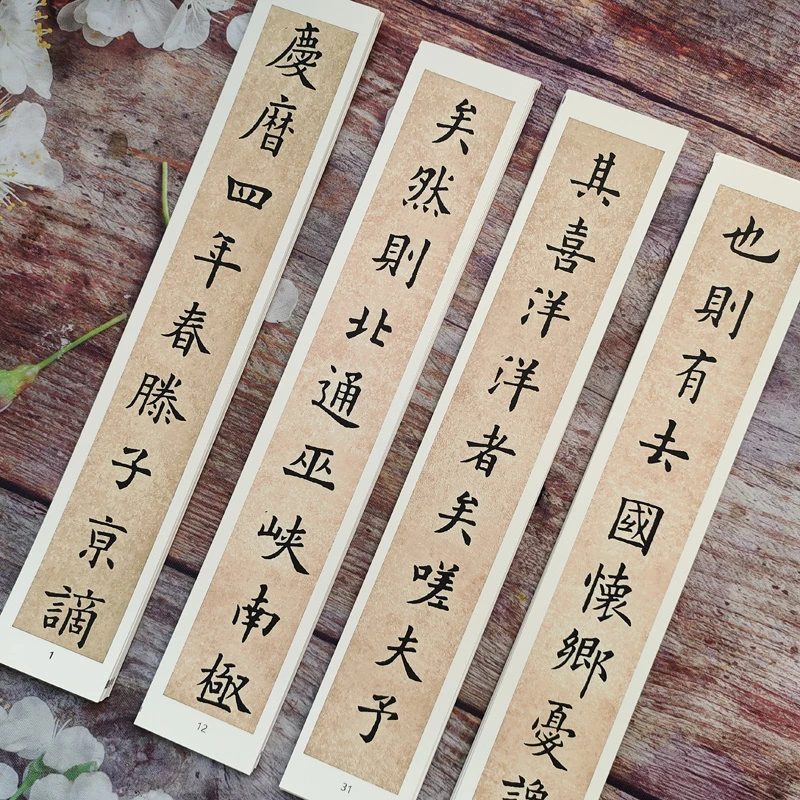 慶曆四年春滕子京謫
1
矣然則北通巫峽南極
12
其喜洋洋者矣嗟夫予
31
也則有去國懷鄉憂